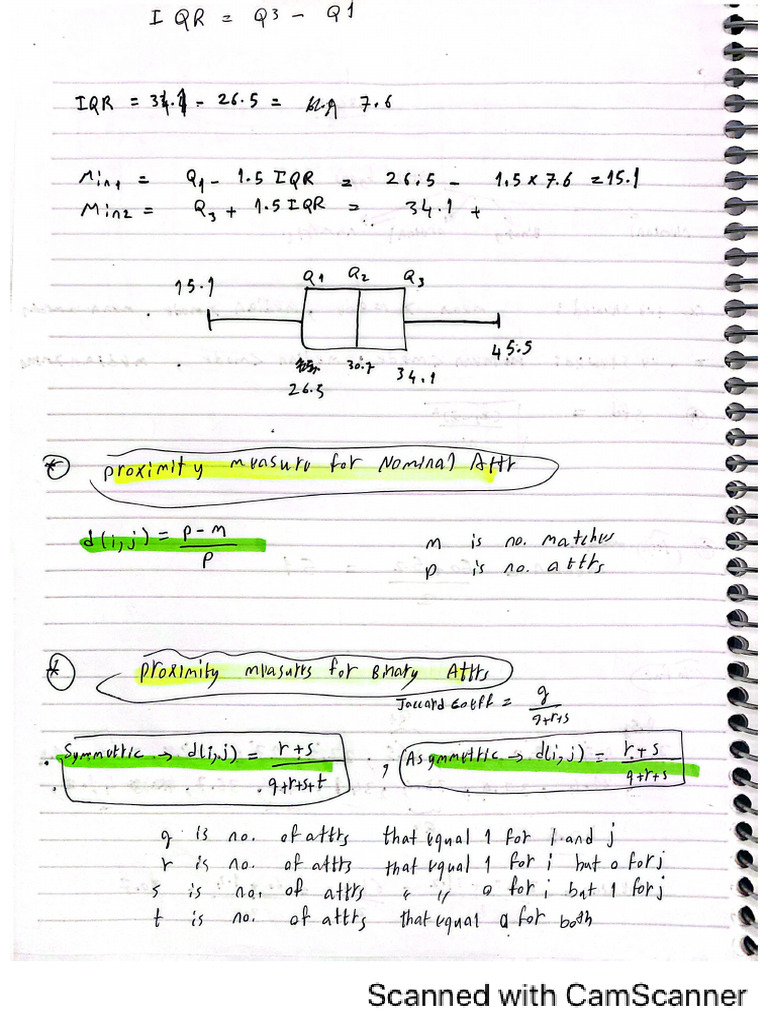 IQR = Q3 - Q1
IQR = 34.1 - 26.5 = 7.6
Min1 = Q1 - 1.5 IQR = 26.5 - 1.5 x 7.6 = 15.1
Min2 = Q3 + 1.5 IQR = 34.1 +
Q1 Q2 Q3
15.1
45.5
30.7
34.1
26.5
* proximity measure for Nominal Attr
d(i,j) = p-m / p
m is no. matches
p is no. attrs
* proximity measures for Binary Attrs
Jaccard coeff = q / q+r+s
Symmetric → d(i,j) = r+s / q+r+s+t , Asymmetric → d(i,j) = r+s / q+r+s
q is no. of attrs that equal 1 for i and j
r is no. of attrs that equal 1 for i but 0 for j
s is no. of attrs " " 0 for i but 1 for j
t is no. of attrs that equal 0 for both
Scanned with CamScanner